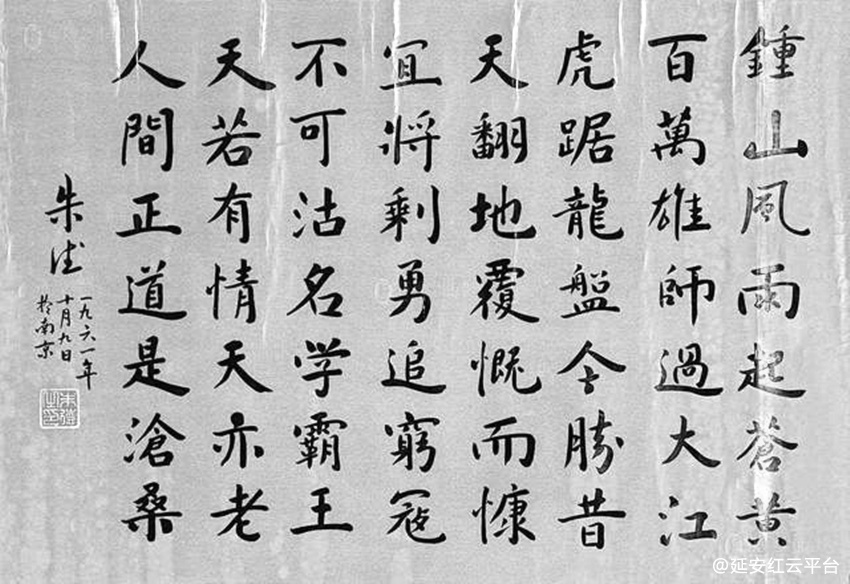 鍾山風雨起蒼黃
百萬雄師過大江
虎踞龍盤今勝昔
天翻地覆慨而慷
冝將剩勇追窮冦
不可沽名学霸王
天若有情天亦老
人間正道是滄桑
朱德
一九六一年
十月九日
於南京
@延安红云平台